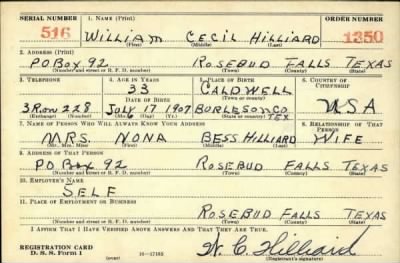 SERIAL NUMBER 1. NAME (Print) ORDER NUMBER
516 WILLIAM CECIL HILLIARD 1350
(First) (Middle) (Last)
2. ADDRESS (Print)
PO Box 92 ROSEBUD FALLS TEXAS
(Number and street or R. F. D. number) (Town) (County) (State)
3. TELEPHONE 4. AGE IN YEARS 5. PLACE OF BIRTH 6. COUNTRY OF CITIZENSHIP
33 CALDWELL
(Town or county)
DATE OF BIRTH
3R on 228 JULY 17 1907 BURLESON CO TEX USA
(Exchange) (Number) (Mo.) (Day) (Yr.) (State or country)
7. NAME OF PERSON WHO WILL ALWAYS KNOW YOUR ADDRESS 8. RELATIONSHIP OF THAT PERSON
MRS NONA BESS HILLIARD WIFE
(Mr., Mrs., Miss) (First) (Middle) (Last)
9. ADDRESS OF THAT PERSON
PO Box 92 ROSEBUD FALLS TEXAS
(Number and street or R. F. D. number) (Town) (County) (State)
10. EMPLOYER'S NAME
SELF
11. PLACE OF EMPLOYMENT OR BUSINESS
ROSEBUD FALLS TEXAS
(Number and street or R. F. D. number) (Town) (County) (State)
I AFFIRM THAT I HAVE VERIFIED ABOVE ANSWERS AND THAT THEY ARE TRUE.
REGISTRATION CARD
D. S. S. Form 1 (over) 16—17105 W. C. Hilliard
(Registrant's signature)